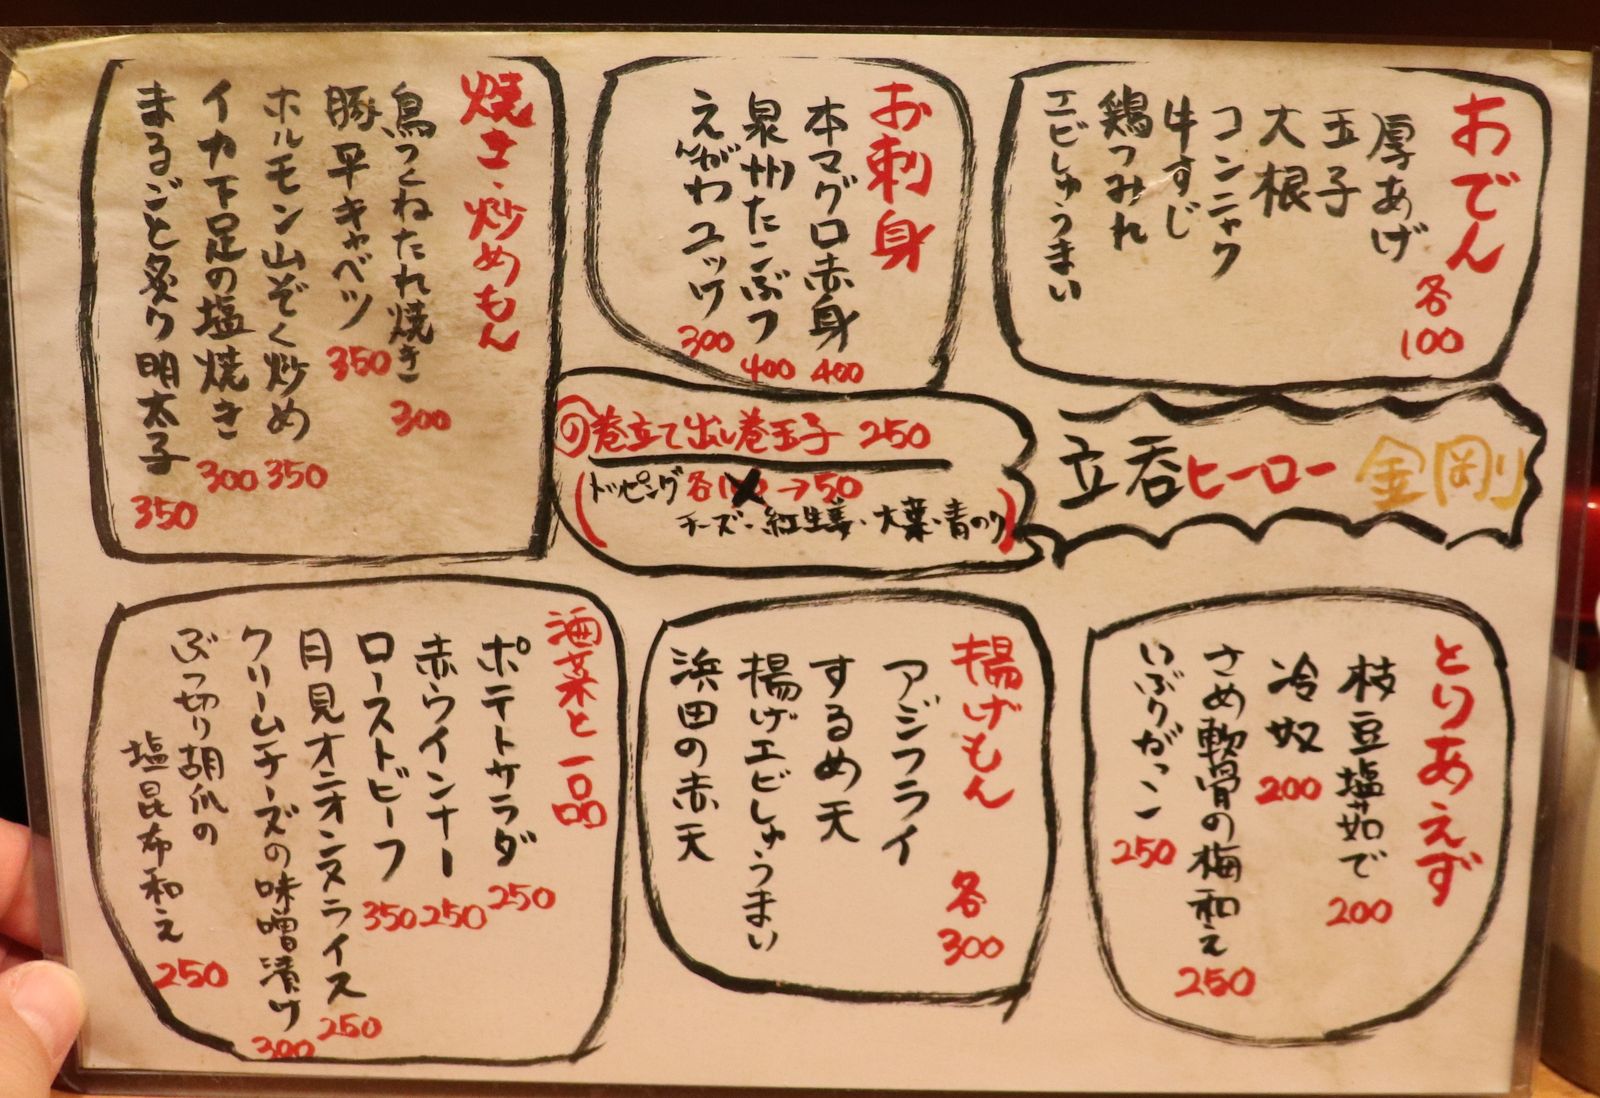 おでん 各100
厚あげ
玉子
大根
コンニャク
牛すじ
鶏つみれ
エビしゅうまい
お刺身
本マグロ赤身 400
泉州たこぶつ 400
えんがわユッケ 300
焼き・炒めもん
鳥つくねたれ焼き 300
豚平キャベツ 350
ホルモン山ぞく炒め 350
イカ下足の塩焼き 300
まるごと炙り明太子 350
立呑ヒーロー 金剛
巻立て出し巻玉子 250
トッピング各100→50
チーズ・紅生姜・大葉・青のり
とりあえず
枝豆塩茹で 200
冷奴 200
さめ軟骨の梅和え 250
いぶりがっこ 250
揚げもん 各300
アジフライ
するめ天
揚げエビしゅうまい
浜田の赤天
酒菜と一品
ポテトサラダ 250
赤ウインナー 250
ローストビーフ 350
月見オニオンスライス 250
クリームチーズの味噌漬け 300
ぶつ切り胡瓜の
塩昆布和え 250